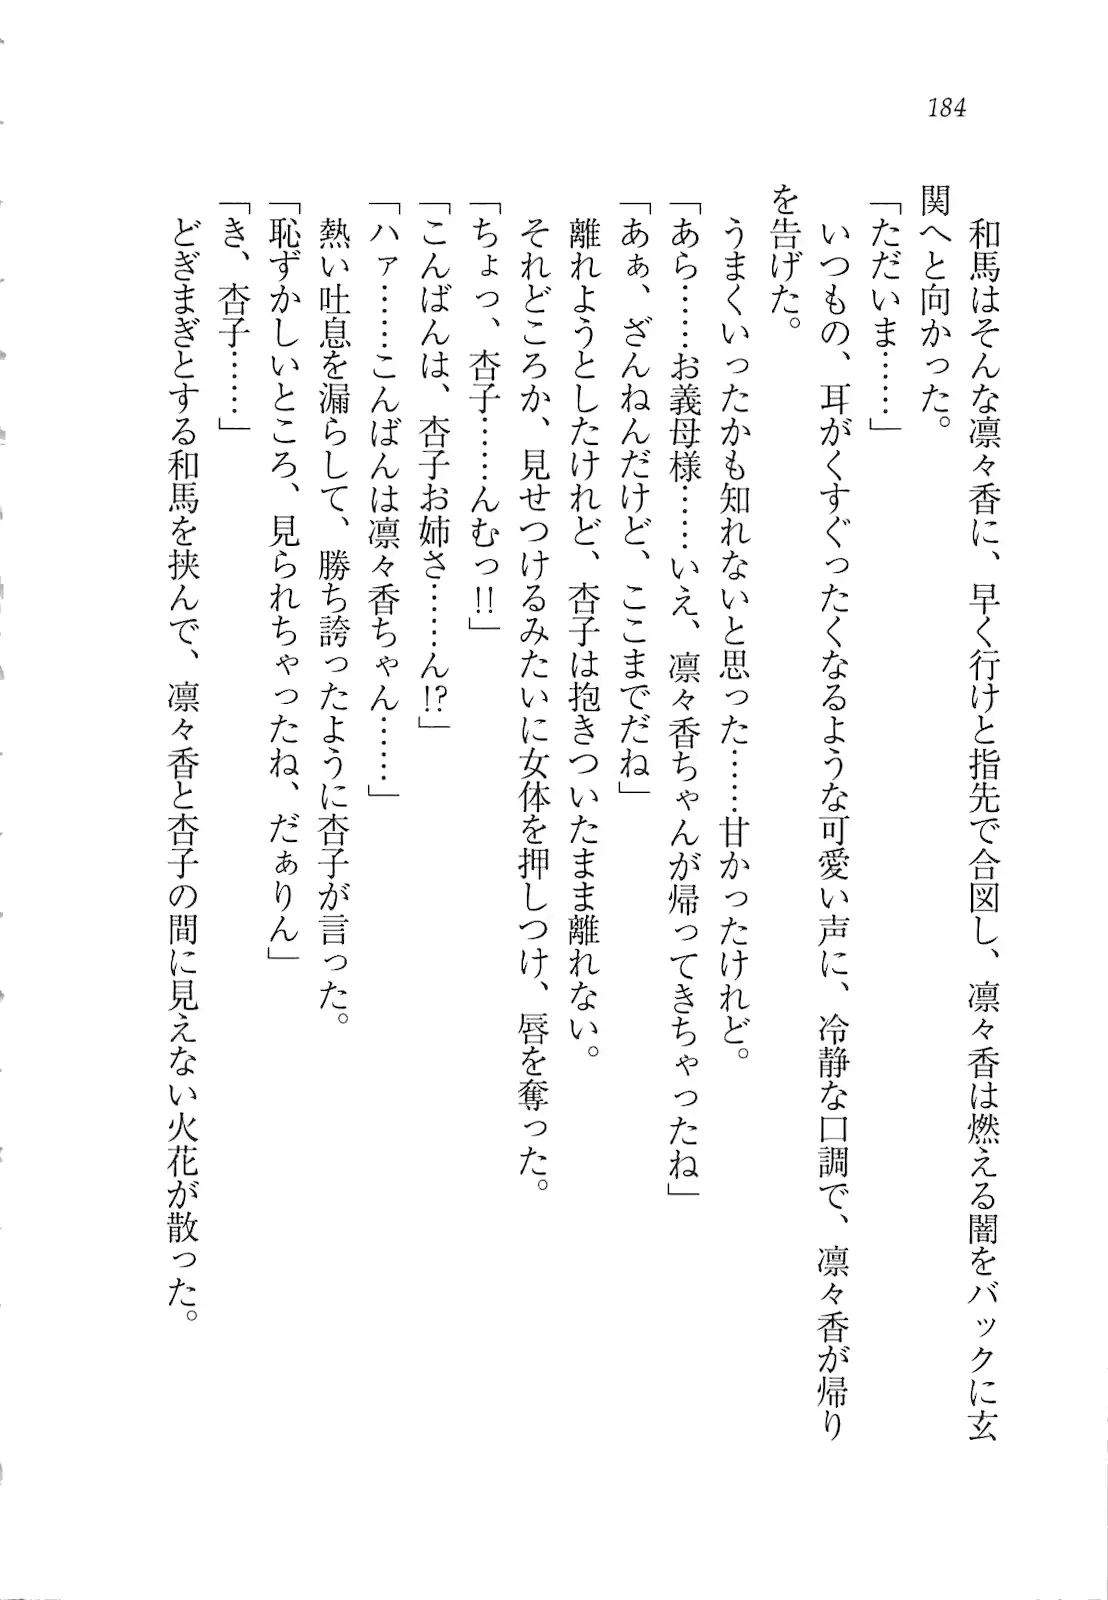 184
和馬はそんな凛々香に、早く行けと指先で合図し、凛々香は燃える闇をバックに玄
関へと向かった。
「ただいま……」
いつもの、耳がくすぐったくなるような可愛い声に、冷静な口調で、凛々香が帰り
を告げた。
うまくいったかも知れないと思った……甘かったけれど。
「あら……お義母様……いえ、凛々香ちゃんが帰ってきちゃったね」
「あぁ、ざんねんだけど、ここまでだね」
離れようとしたけれど、杏子は抱きついたまま離れない。
それどころか、見せつけるみたいに女体を押しつけ、唇を奪った。
「ちょっ、杏子……んむっ!!」
「こんばんは、杏子お姉さ……ん!?」
「ハァ……こんばんは凛々香ちゃん……」
熱い吐息を漏らして、勝ち誇ったように杏子が言った。
「恥ずかしいところ、見られちゃったね、だぁりん」
「き、杏子……」
どぎまぎとする和馬を挟んで、凛々香と杏子の間に見えない火花が散った。